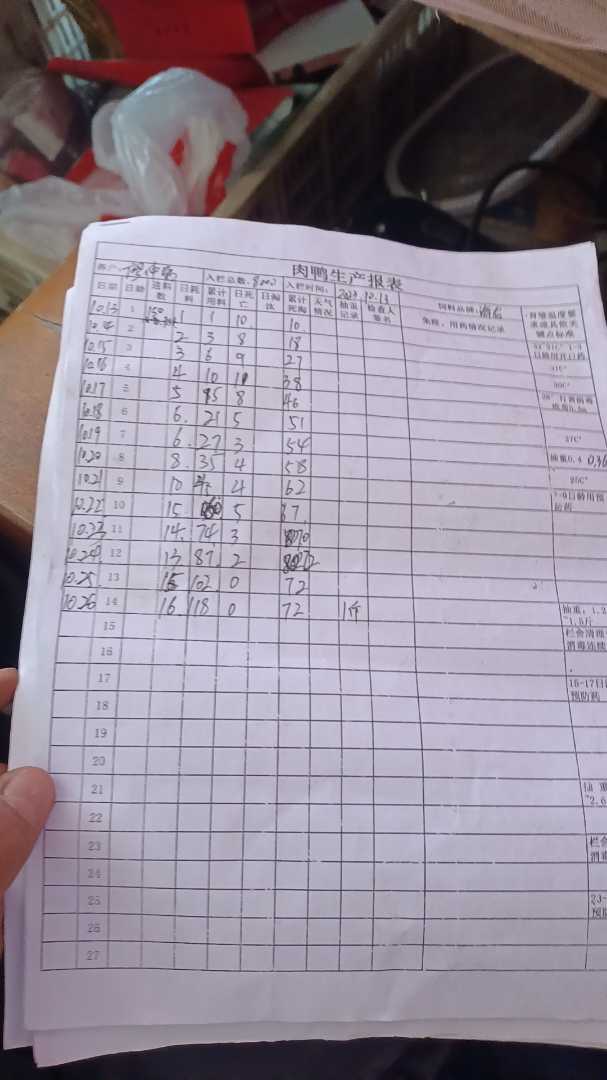 肉鸭生产报表
客户 入栏总数:8000 入栏时间: 10.13 饲料品牌:
日期 日龄 进料数 日耗料 累计用料 日死亡 日淘汰 累计死淘 天气情况 抽重记录 检查人签名 免疫、用药情况记录 育雏温度要求或其他关键点标准
10.13 1 150 1 1 10 10
10.14 2 2 3 8 18
10.15 3 3 6 9 27
10.16 4 4 10 11 38 31C°
10.17 5 5 15 8 46
10.18 6 6. 21 5 51
10.19 7 6. 27 3 54 27C°
10.20 8 8. 35 4 58 抽重0.4 0.36
10.21 9 10 4 62
10.22 10 15 60 5 67
10.23 11 14. 74 3 70
10.24 12 13 87. 2 72
10.25 13 15 102 0 72
10.26 14 16 118 0 72 1斤 抽重:1.2
~1.5斤
15 栏舍清理
16 消毒连续
17 15-17日
预防药
18
19
20
21 抽重
~2.6
22
23 栏舍
消毒
24
25 23-
预防
26
27